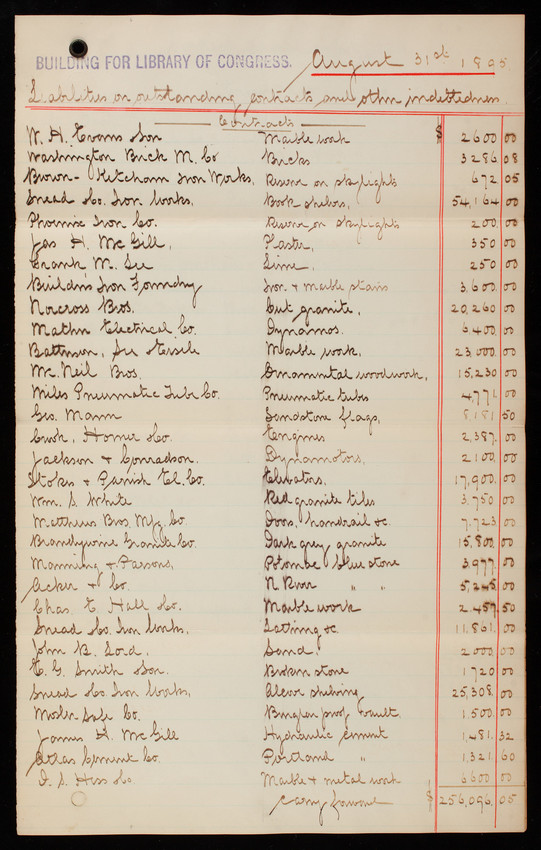 BUILDING FOR LIBRARY OF CONGRESS. August 31st 1895
Liabilities on outstanding contracts and other indebtedness.
Contracts
W. H. Evans & Son Marble work $ 2600 00
Washington Brick M. Co Bricks 3286 08
Brown-Ketcham Iron Works, Reserve on skylights 672 05
Snead & Co. Iron Works, Book shelves, 54,164 00
Phoenix Iron Co. Reserve on skylights 200 00
Jas H. McGill, Plaster, 350 00
Frank M. Lime, 250 00
Builders Iron Foundry Iron & marble stairs 3,600 00
Norcross Bros. Cut granite, 20,260 00
Mather Electrical Co. Dynamos. 6400 00
Batterson, See & Eisele Marble work, 23,000 00
Mc. Neil Bros. Ornamental woodwork, 15,230 00
Miles Pneumatic Tube Co. Pneumatic tubes 4,771 00
Geo. Mann Sandstone flags, 8181 50
Cook, Horner & Co. Engines 2,387 00
Jackson & Conradson. Dynamotors, 2100 00
Stokes & Parrish El. Co. Elevators, 17,900 00
Wm. S. White Red granite tiles 3,750 00
Matthews Bros. Mfg. Co. Doors, handrail &c. 7,723 00
Brandywine Granite Co. Dark grey granite 15,800 00
Manning & Parsons, Potomac blue stone 3,977 00
Acker & Co. N River " " 5,245 00
Chas. E. Hall & Co. Marble work 2,457 50
Snead & Co. Iron Works, Lathing &c. 11,861 00
John B. Lord, Sand. 2000 00
E. G. Smith & Son. Broken stone 1720 00
Snead & Co. Iron Works, Alcove shelving 25,308 00
Mosler Safe Co. Burglar proof vault. 1,500 00
James H. McGill Hydraulic cement 1,481 32
Atlas Cement Co. Portland " 1,321 60
D. S. Hess & Co. Marble & metal work 6600 00
Carry forward $ 256,096 05